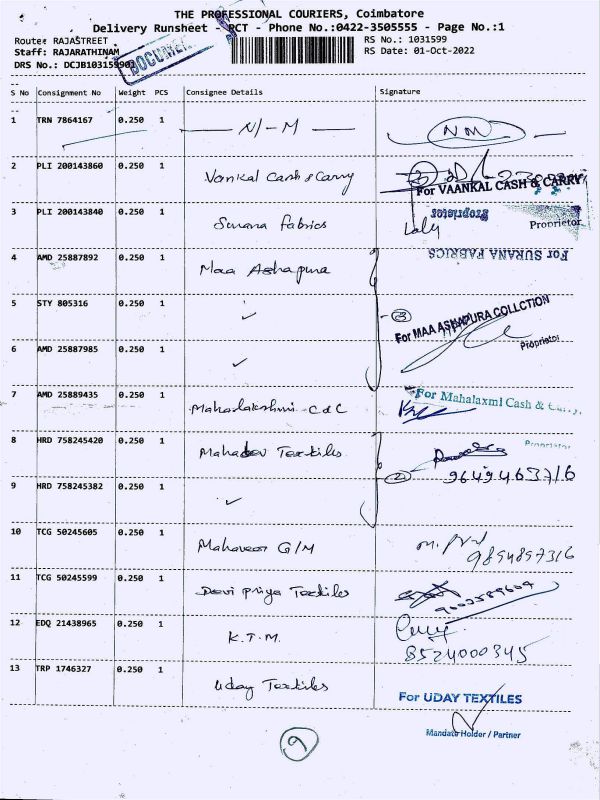 THE PROFESSIONAL COURIERS, Coimbatore
Delivery Runsheet - PCT - Phone No.:0422-3505555 - Page No.:1
Route: RAJASTREET
RS No.: 1031599
Staff: RAJARATHINAM
RS Date: 01-Oct-2022
DRS No.: DCJB103159901
DOCUMENT
S No Consignment No Weight PCS Consignee Details Signature
1 TRN 7864167 0.250 1 N/-M NM
2 PLI 200143860 0.250 1 Vankal Cash & Carry
For VAANKAL CASH & CARRY
3 PLI 200143840 0.250 1 Surana fabrics
Proprietor
Proprietor
For SURANA FABRICS
4 AMD 25887892 0.250 1 Maa Ashapura
5 STY 805316 0.250 1 ✓ 3
For MAA ASHAPURA COLLCTION
Proprietor
6 AMD 25887985 0.250 1 ✓
7 AMD 25889435 0.250 1 Mahalakshmi C&C
For Mahalaxmi Cash & Carry,
Proprietor
8 HRD 758245420 0.250 1 Mahadev Textiles
2 9649463716
9 HRD 758245382 0.250 1 ✓
10 TCG 50245605 0.250 1 Mahaveer G/M
9894897316
11 TCG 50245599 0.250 1 Devi Priya Textiles
12 EDQ 21438965 0.250 1 K.T.M.
8524000345
13 TRP 1746327 0.250 1 Uday Textiles
For UDAY TEXTILES
Mandate Holder / Partner
9